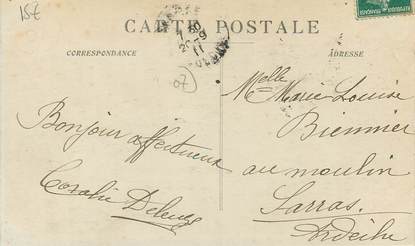 15€
CARTE POSTALE
CORRESPONDANCE
ADRESSE
20-9
11
07
Melle Marie Louise
Biennier
Bonjour affectueux
au moulin
Coralie Deleuze
Sarras
Ardèche